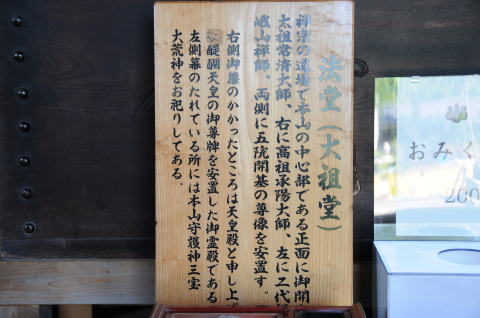 法堂（大祖堂）
禅宗の道場で本山の中心部である正面に御開
太祖常済大師、右に高祖承陽大師、左に二代
峨山禅師、両側に五院開基の尊像を安置す。
右側御簾のかかったところは天皇殿と申し上
醍醐天皇の御尊牌を安置した御霊殿である
左側幕のたれている所には本山守護神三宝
大荒神をお祀りしてある。
おみく
200